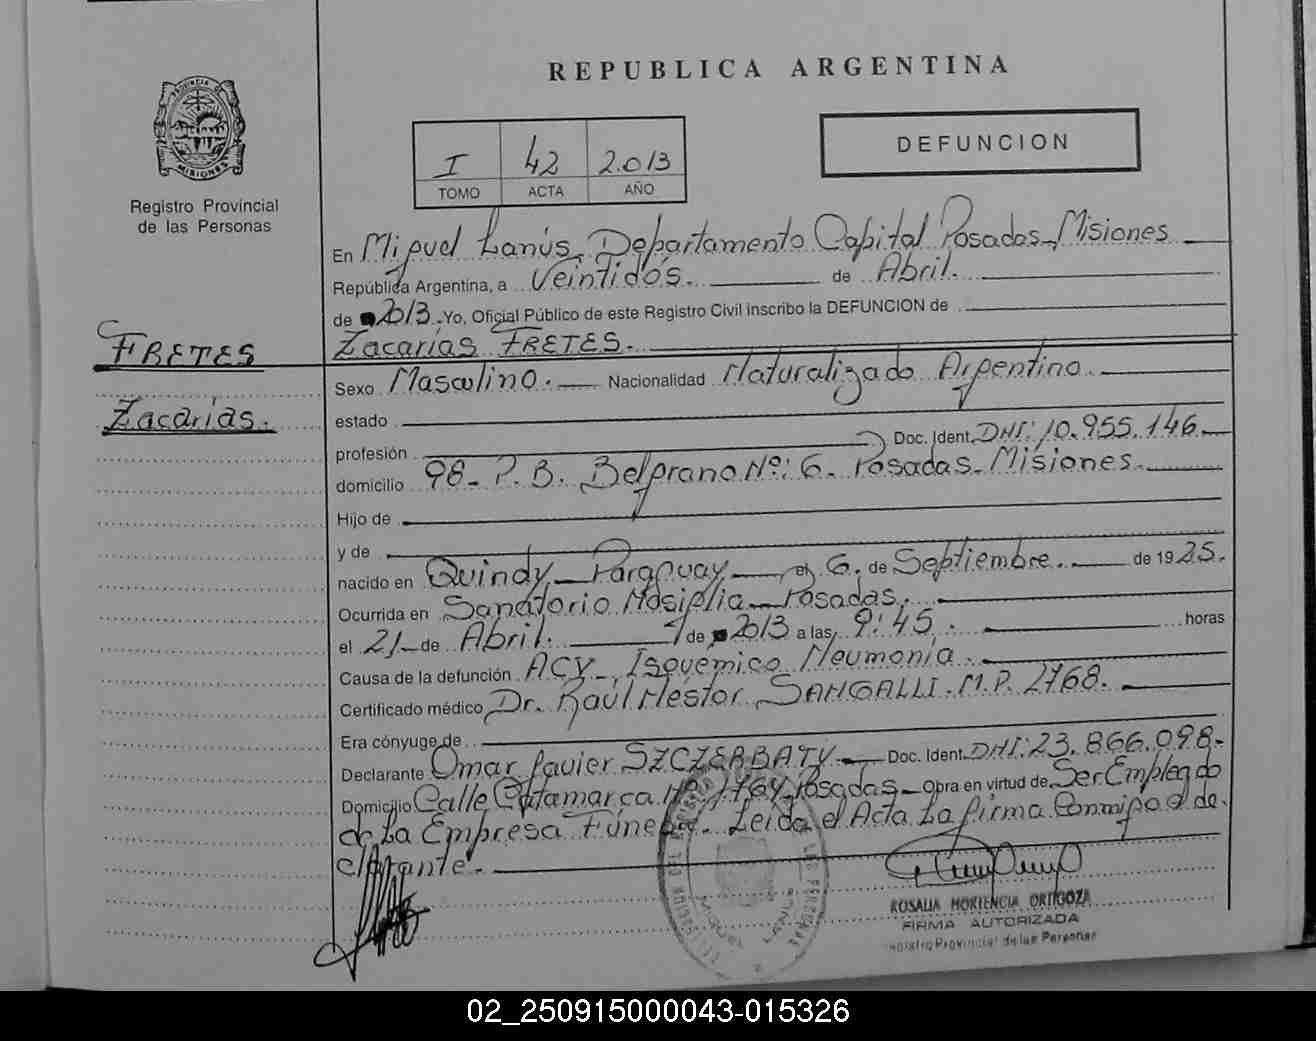 REPUBLICA ARGENTINA
PROVINCIA DE MISIONES
Registro Provincial
de las Personas
I 42 2.013
TOMO ACTA AÑO
DEFUNCION
FRETES
Zacarías.
En Miguel Lanús, Departamento Capital Posadas, Misiones
República Argentina, a Veintidós. de Abril.
de 2013. Yo, Oficial Público de este Registro Civil inscribo la DEFUNCION de
Zacarías FRETES.
Sexo Masculino. Nacionalidad Naturalizado Argentino.
estado
profesión Doc. Ident. DNI: 10.955.146.
domicilio 98- P.B. Belgrano Nº: 6- Posadas-Misiones.
Hijo de
y de
nacido en Quindy-Paraguay el 6. de Septiembre. de 1925.
Ocurrida en Sanatorio Posadas.
el 21- de Abril. de 2013 a las 9:45. horas
Causa de la defunción ACV-Isquemico Neumonía.
Certificado médico Dr. Raúl Néstor SANGALLI. M.P. 2768.
Era cónyuge de
Declarante Omar Javier SZCZERBATY Doc. Ident. DNI: 23.866.098-
Domicilio Calle Catamarca Nº Posadas- Obra en virtud de Ser Empleado
de La Empresa Fúnebre. Leída el Acta La firma Conmigo el de-
clarante.
ROSALIA HORTENCIA ORTIGOZA
FIRMA AUTORIZADA
Registro Provincial de las Personas
02_250915000043-015326